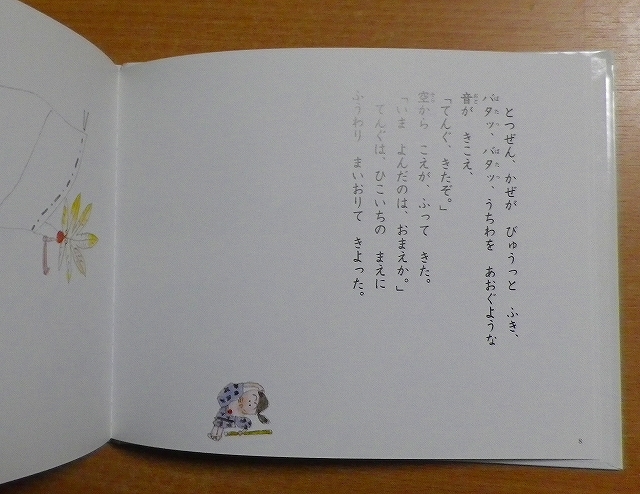 とつぜん、かぜが びゅうっと ふき、
バタッ、バタッ、うちわを あおぐような
音が きこえ、
「てんぐ、きたぞ。」
空から こえが、ふって きた。
「いま よんだのは、おまえか。」
てんぐは、ひこいちの まえに
ふうわり まいおりて きよった。
8